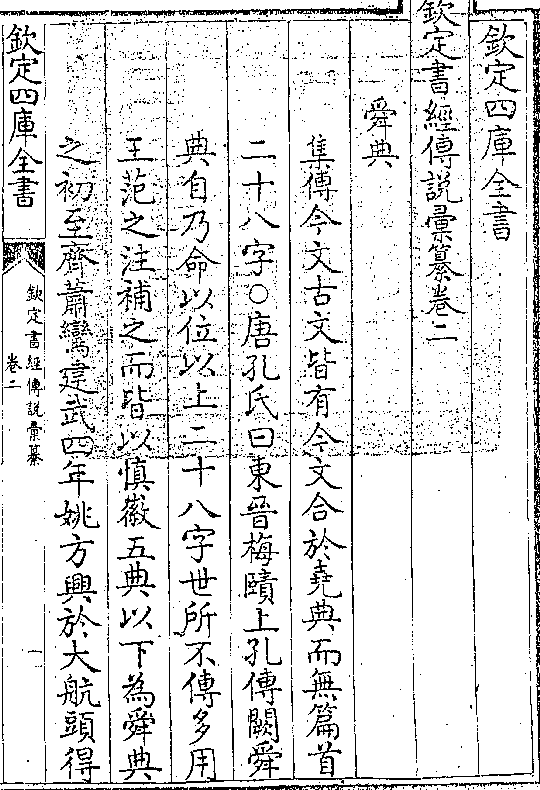 欽定四庫全書
欽定書經傳說彙纂卷二
舜典
集傳今文古文皆有今文合於堯典而無篇首
二十八字○唐孔氏曰東晉梅賾上孔傳闕舜
典自乃命以位以上二十八字世所不傳多用
王范之注補之而皆以慎徽五典以下為舜典
之初至齊蕭鸞建武四年姚方興於大航頭得
欽定四庫全書
欽定書經傳說彙纂
卷二
一